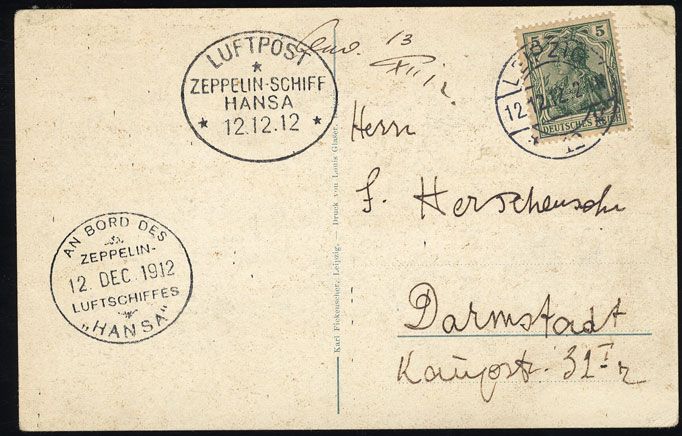 LUFTPOST
ZEPPELIN-SCHIFF
HANSA
* 12.12.12 *
AN BORD DES
ZEPPELIN-
12. DEC. 1912
LUFTSCHIFFES
„HANSA“
Karl Fickenscher, Leipzig. — Druck von Louis Glaser,
13
XII 12.
LEIPZIG
12.12.12.2
* 12
5 5
DEUTSCHES REICH
Herrn
Darmstadt